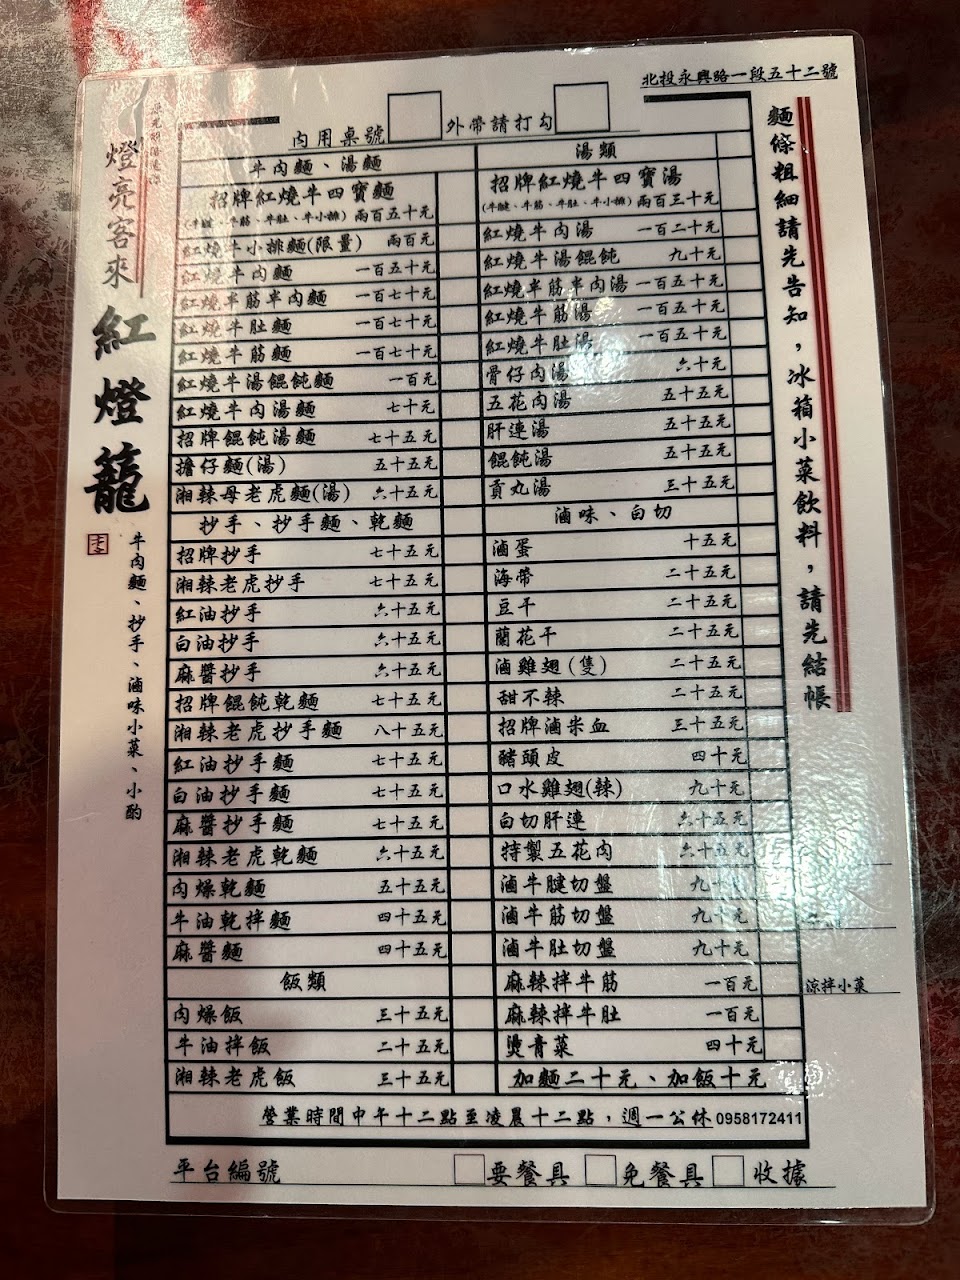 北投永興路一段五十二號
內用桌號 外帶請打勾
麵條粗細請先告知，冰箱小菜飲料，請先結帳
燈亮客來
紅燈籠
牛肉麵、抄手、滷味小菜、小酌
牛肉麵、湯麵
招牌紅燒牛四寶麵
(牛腱、牛筋、牛肚、牛小排) 兩百五十元
紅燒牛小排麵(限量) 兩百元
紅燒牛肉麵 一百五十元
紅燒半筋半肉麵 一百七十元
紅燒牛肚麵 一百七十元
紅燒牛筋麵 一百七十元
紅燒牛湯餛飩麵 一百元
紅燒牛肉湯麵 七十元
招牌餛飩湯麵 七十五元
擔仔麵(湯) 五十五元
湘辣母老虎麵(湯) 六十五元
抄手、抄手麵、乾麵
招牌抄手 七十五元
湘辣老虎抄手 七十五元
紅油抄手 六十五元
白油抄手 六十五元
麻醬抄手 六十五元
招牌餛飩乾麵 七十五元
湘辣老虎抄手麵 八十五元
紅油抄手麵 七十五元
白油抄手麵 七十五元
麻醬抄手麵 七十五元
湘辣老虎乾麵 六十五元
肉燥乾麵 五十五元
牛油乾拌麵 四十五元
麻醬麵 四十五元
飯類
肉燥飯 三十五元
牛油拌飯 二十五元
湘辣老虎飯 三十五元
湯類
招牌紅燒牛四寶湯
(牛腱、牛筋、牛肚、牛小排) 兩百三十元
紅燒牛肉湯 一百二十元
紅燒牛湯餛飩 九十元
紅燒半筋半肉湯 一百五十元
紅燒牛筋湯 一百五十元
紅燒牛肚湯 一百五十元
骨仔肉湯 六十元
五花肉湯 五十五元
肝連湯 五十五元
餛飩湯 五十五元
貢丸湯 三十五元
滷味、白切
滷蛋 十五元
海帶 二十五元
豆干 二十五元
蘭花干 二十五元
滷雞翅(隻) 二十五元
甜不辣 二十五元
招牌滷米血 三十五元
豬頭皮 四十元
口水雞翅(辣) 九十元
白切肝連 六十五元
特製五花肉 六十五元
滷牛腱切盤 九十元
滷牛筋切盤 九十元
滷牛肚切盤 九十元
麻辣拌牛筋 一百元
麻辣拌牛肚 一百元
燙青菜 四十元
加麵二十元、加飯十元
涼拌小菜
營業時間中午十二點至凌晨十二點，週一公休 0958172411
平台編號 要餐具 免餐具 收據